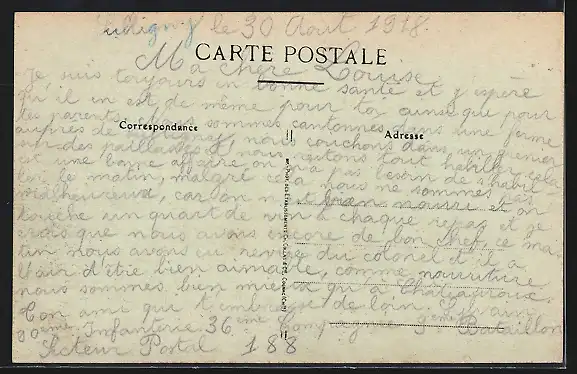 le 30 Août 1918.
CARTE POSTALE
Ma chère Louise
Je suis toujours en bonne santé et j'espère
qu'il en est de même pour toi ainsi que pour
tes parents. Nous sommes cantonnés dans une ferme
auprès de nous couchons dans un grenier
Correspondance
Adresse
sur des paillasses et nous restons tout habillés cela
est une bonne affaire on n'a pas besoin de s'habiller
le matin, malgré cela nous ne sommes pas
malheureux, car on est bien nourri et on
touche un quart de vin à chaque repas et je
crois que nous avons encore de bon chef, ce ma-
tin nous avons eu revue du colonel et il a
l'air d'être bien aimable, comme nourriture
nous sommes bien mieux qu'à Châteauroux.
Ton ami qui t'embrasse de loin.
Infanterie 36ème Compagnie 9ème Bataillon
Secteur Postal 188